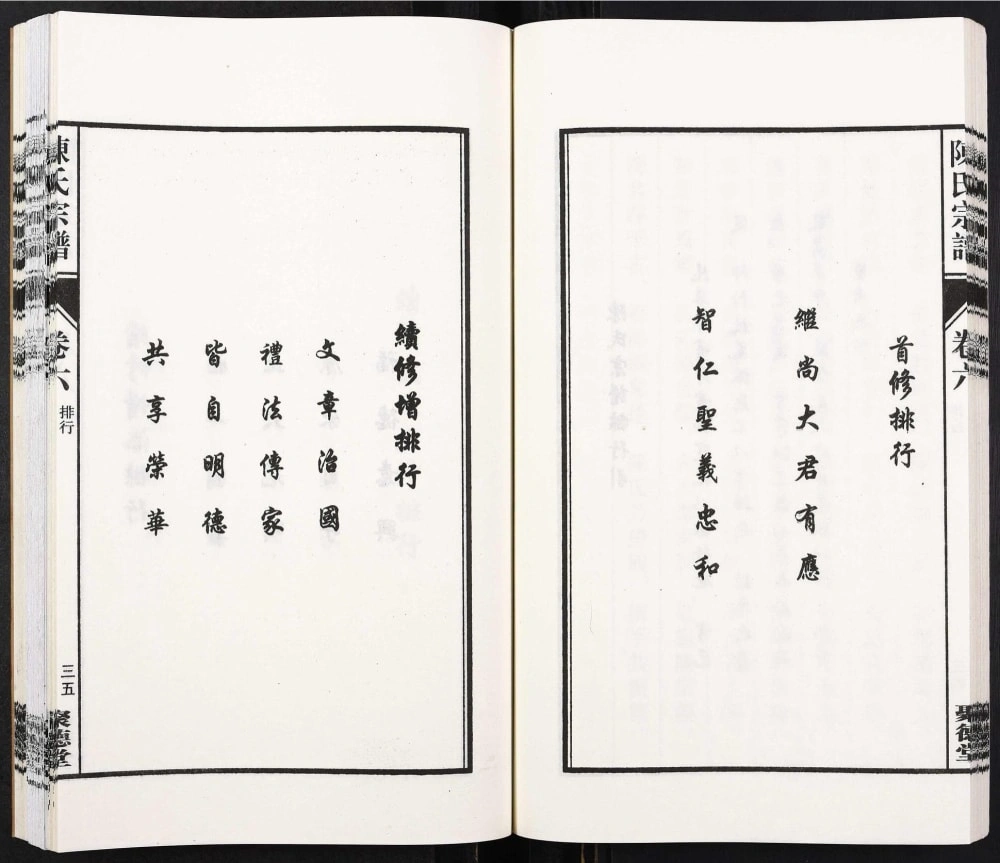 陳氏宗譜
卷六
聚德堂
首修排行
繼尚大君有應
智仁聖義忠和
續修增排行
文章治國
禮法傳家
皆自明德
共享榮華
陳氏宗譜
卷六
排行
三五
聚德堂